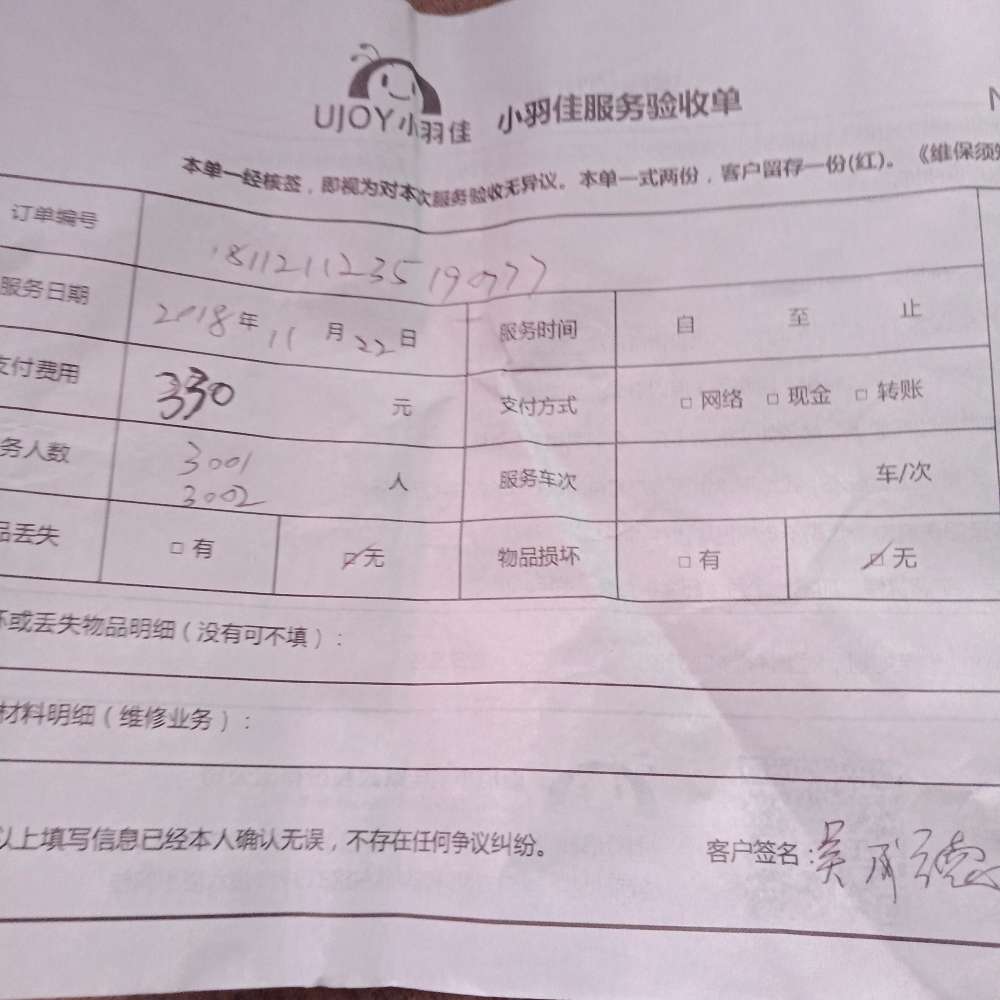 UJOY小羽佳 小羽佳服务验收单 N
本单一经核签，即视为对本次服务验收无异议。本单一式两份，客户留存一份(红)。《维保须知
订单编号 1811211235190777
服务日期 2018年 11 月 22 日 服务时间 自 至 止
支付费用 330 元 支付方式 □ 网络 □ 现金 □ 转账
务人数 3001 人 服务车次 车/次
3002
品丢失 □ 有 ☑ 无 物品损坏 □ 有 ☑ 无
坏或丢失物品明细（没有可不填）：
材料明细（维修业务）：
以上填写信息已经本人确认无误，不存在任何争议纠纷。 客户签名：吴成德